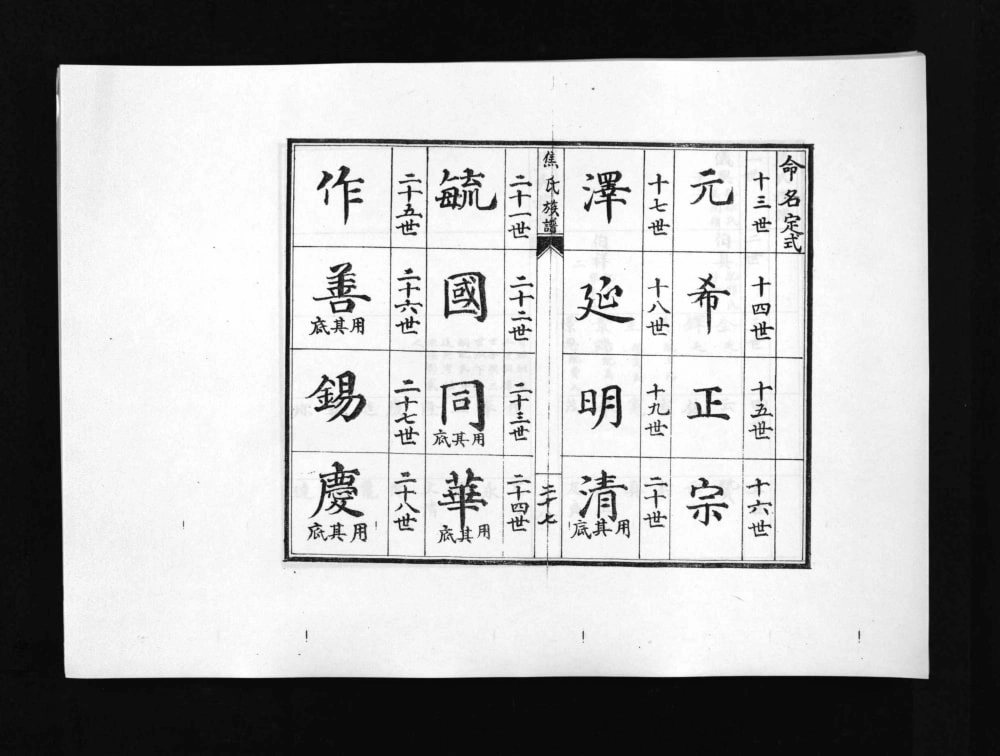 命名定式
十三世
元
十四世
希
十五世
正
十六世
宗
十七世
澤
十八世
延
十九世
明
二十世
清
用其底
焦氏族譜
二十七
二十一世
毓
二十二世
國
二十三世
同
用其底
二十四世
華
用其底
二十五世
作
二十六世
善
用其底
二十七世
錫
二十八世
慶
用其底